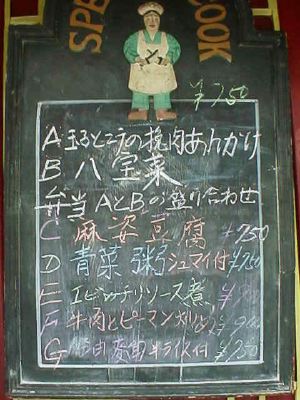 SPE COOK
¥750
A 玉子とニラの挽肉あんかけ
B 八宝菜
弁当 AとBの盛り合わせ
C 麻婆豆腐 ¥750
D 青菜粥 シュマイ付 ¥750
E エビのチリソース煮
F 牛肉とピーマン
G 半ライス付